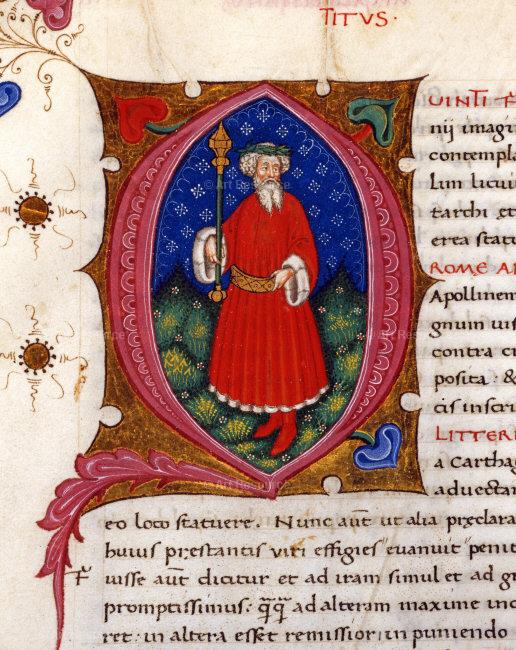 TITVS·
UINTI F
nij imagi
contempla
lim licui
tarchi et
erea statu
ROME A
Apollinem
gnum uis
contra ci
posita : &
cis inscri
LITTERI
a Cartha
aduectar
eo loco statuere. Nunc aūt ut alia pręclara
huius pręstantis uiri effigies euanuit penit
F uisse aūt dicitur et ad iram simul et ad g
promptissimus : qq̄ ad alteram maxime inc
ret : in altera esset remissior, in puniendo
© Art Resource